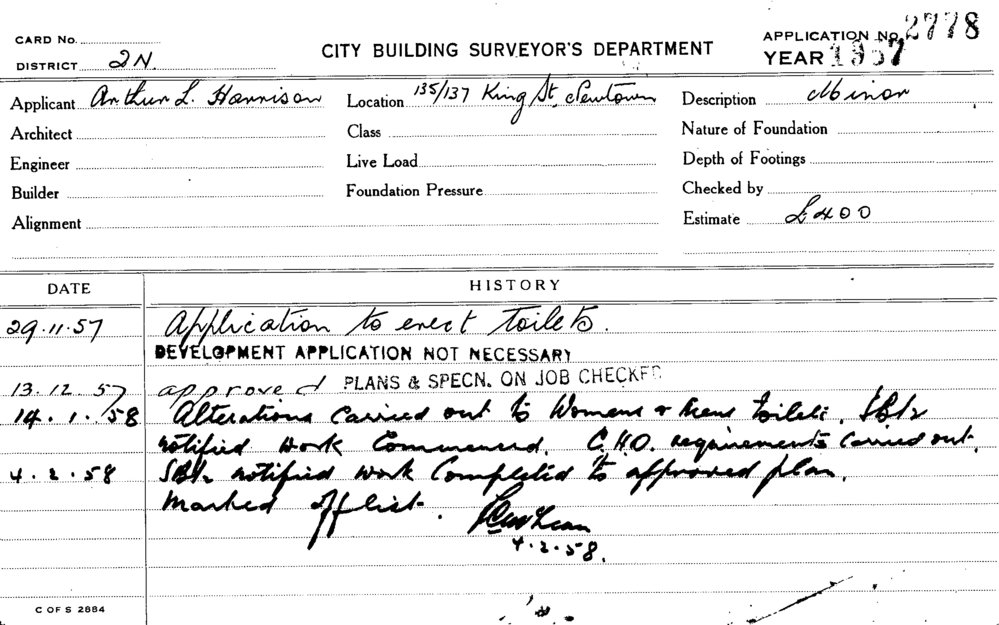 CARD No.
DISTRICT 2N.
CITY BUILDING SURVEYOR'S DEPARTMENT
APPLICATION No. 2778
YEAR 1957
Applicant Arthur L. Harrison
Location 135/137 King St, Newtown
Description Minor
Architect
Class
Nature of Foundation
Engineer
Live Load
Depth of Footings
Builder
Foundation Pressure
Checked by
Alignment
Estimate £400
DATE HISTORY
29.11.57 Application to erect toilets.
DEVELOPMENT APPLICATION NOT NECESSARY
13.12.57 approved PLANS & SPECN. ON JOB CHECKED
14.1.58 Alterations Carried out to Womens & Mens toilets.
notified work Commenced. C.H.O. requirements Carried out.
4.2.58 notified work Completed to approved plan.
Marked off list.
4.2.58.
C OF S 2884